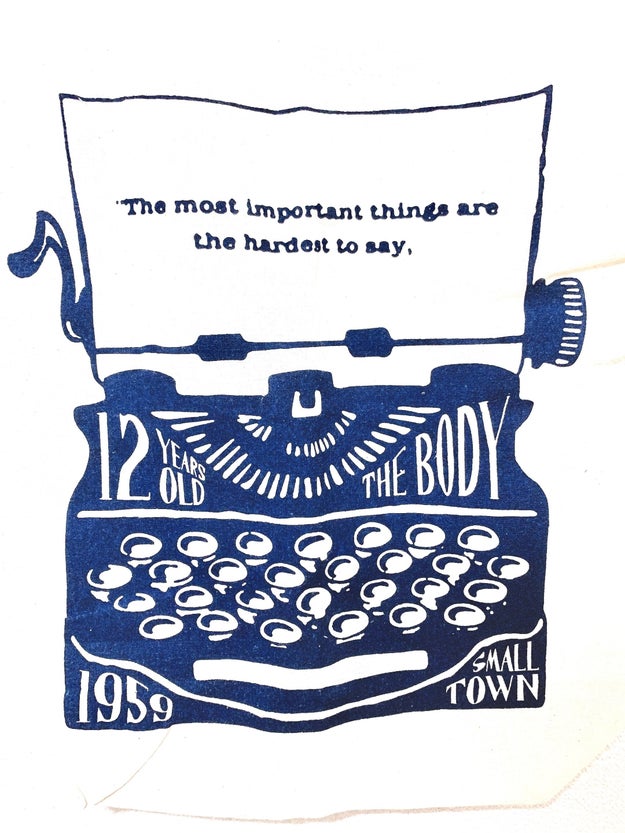 "The most important things are
the hardest to say,
12 YEARS OLD
THE BODY
1959
SMALL TOWN